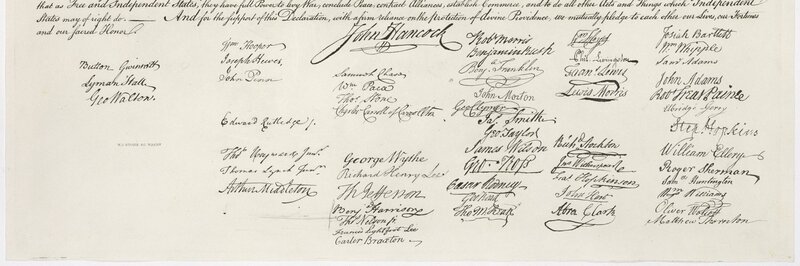 that as Free and Independent States, they have full Power to levy War, conclude Peace, contract Alliances, establish Commerce, and to do all other Acts and Things which Independent
States may of right do. — And for the support of this Declaration, with a firm reliance on the protection of divine Providence, we mutually pledge to each other our Lives, our Fortunes
and our sacred Honor.
Button Gwinnett
Lyman Hall
Geo Walton.
Wm Hooper
Joseph Hewes,
John Penn
Edward Rutledge /.
Thos Heyward Junr.
Thomas Lynch Junr.
Arthur Middleton
John Hancock
Samuel Chase
Wm Paca
Thos Stone
Charles Carroll of Carrollton
George Wythe
Richard Henry Lee
Th Jefferson
Benj Harrison
Thos Nelson jr.
Francis Lightfoot Lee
Carter Braxton
Robt Morris
Benjamin Rush
Benj. Franklin
John Morton
Geo Clymer
Jas. Smith
Geo. Taylor
James Wilson
Geo. Ross
Caesar Rodney
Geo Read
Tho M:Kean
Wm Floyd
Phil. Livingston
Frans. Lewis
Lewis Morris
Richd. Stockton
Jno Witherspoon
Fras. Hopkinson
John Hart
Abra Clark
Josiah Bartlett
Wm Whipple
Saml Adams
John Adams
Robt Treat Paine
Elbridge Gerry
Step. Hopkins
William Ellery
Roger Sherman
Saml Huntington
Wm Williams
Oliver Wolcott
Matthew Thornton